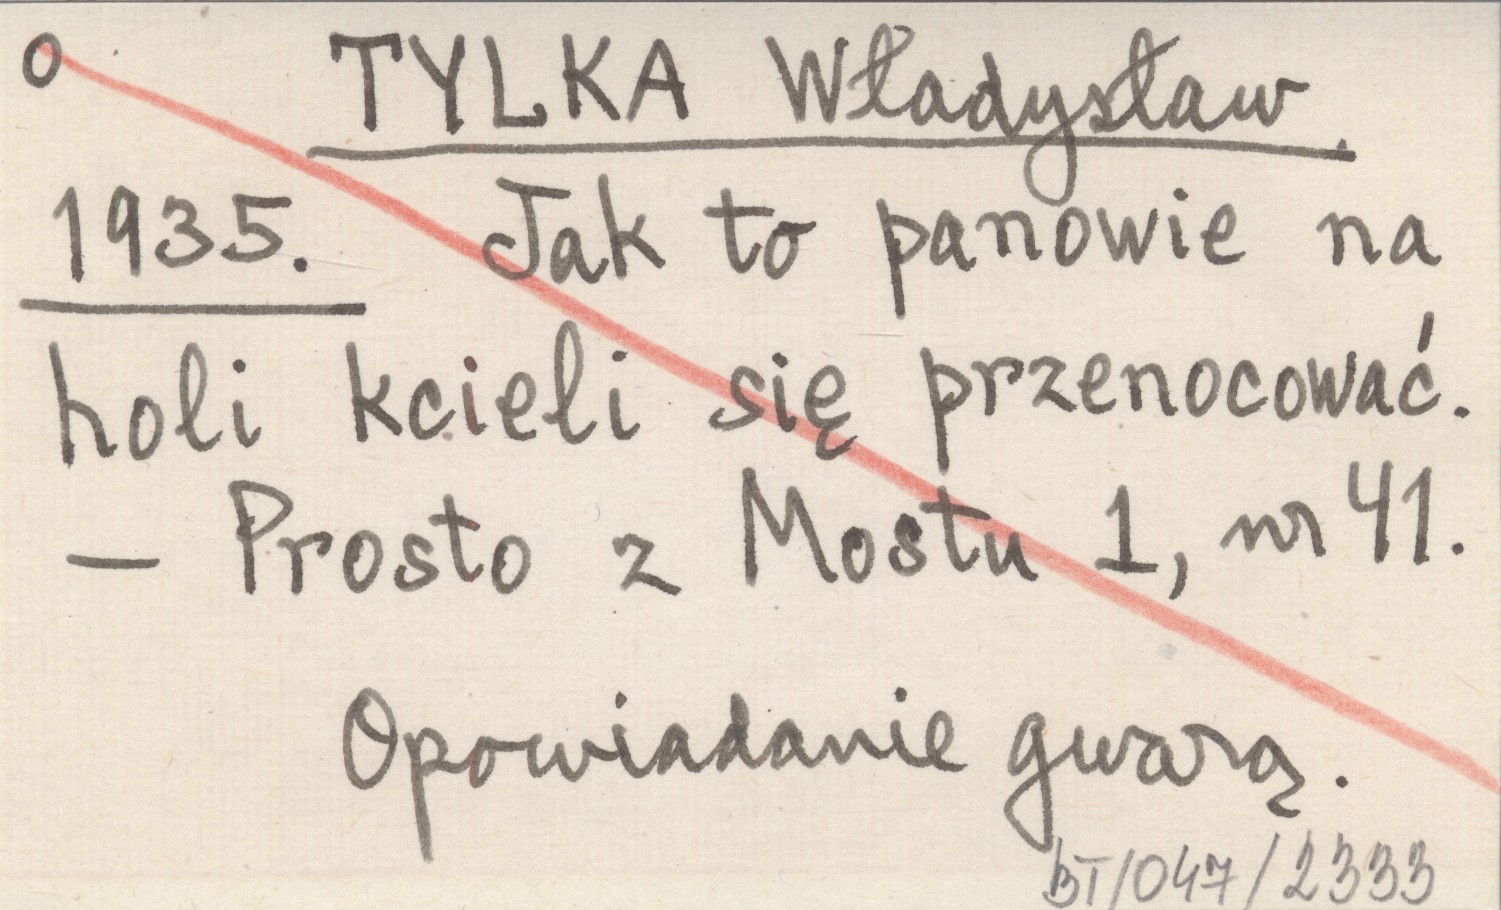 o TYLKA Władysław
1935. Jak to panowie na
holi kcieli się przenocować.
— Prosto z Mostu 1, nr 41.
Opowiadanie gwarą.
BT/047/2333